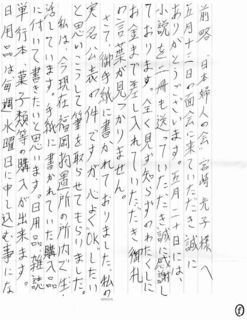 前略 日本婦人の会 宮崎光子様へ
五月十二日の面会に来ていただき誠に
ありがとうございます。五月二十日には、
小説を二冊も送って下さいまして誠に感謝し
ております。全く見ず知らずのわたくしに
お金まで差し入れていただき御礼
の言葉が見つかりません。
さて御手紙に書かれておりました、私の
実名公表の件ですが、心よくOKしたい
と思いこうして筆を取らせてもらいました。
私は、今現在福岡拘置所の所内で生
活しています。手紙に書かれていた購入品
に付いて書きたいと思います。日用品、雑誌
単行本、菓子類等購入が出来ます。
日用品は毎週水曜日に申し込む事にな
①